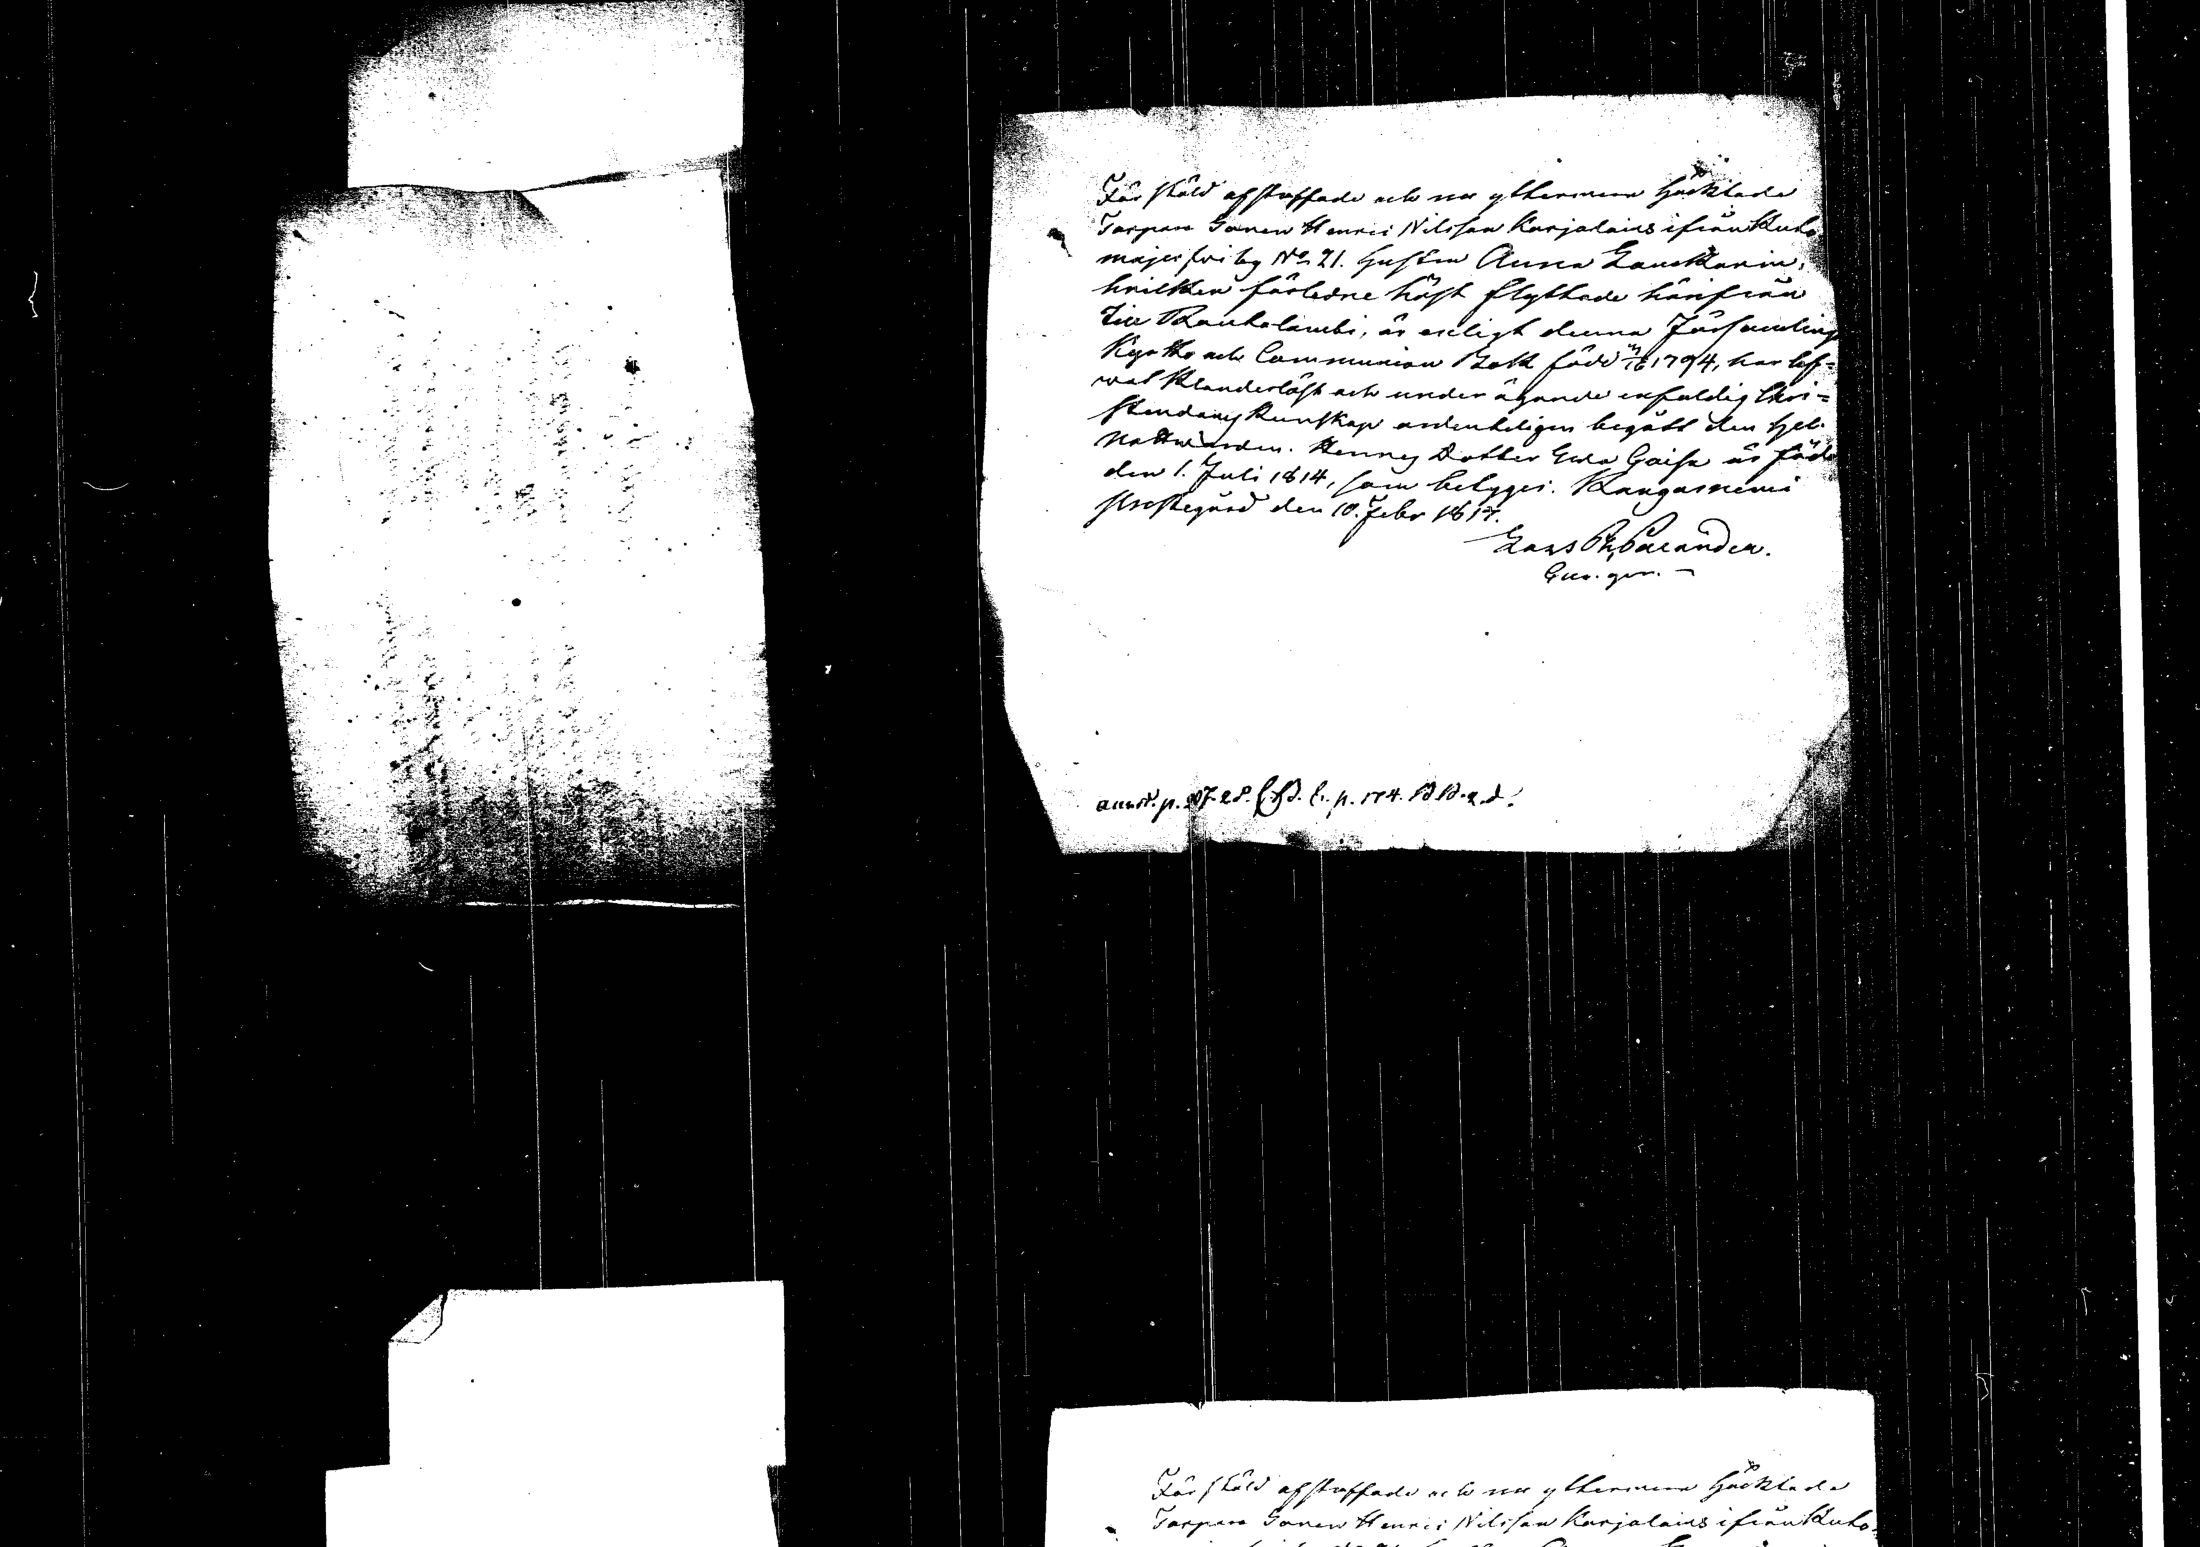 För stöld afstraffade och nu yttermera häktade
Torpare Sonen Henric Nilsson Karjalains ifrån Kuto
majerfvi by No 21. hustru Anna Lauckanin,
hvilken förledne höst flyttade härifrån
till Rautalambi, är enligt denna Församlings
Kyrko och Communion Bok född 1794, har lef=
wat klanderlöst och under ägande enfaldig Chri=
stendoms kunskap ordenteligen begått den hel.
Nattvarden. Hennes Dotter Ewa Caisa är född
den 1. Juli 1814, som betygar. Kangasniemi
Prestegård den 10. Febr 1817.
Lars Palander.
p. 174.
För stöld afstraffade och nu yttermera häktade
Torpare Sonen Henric Nilsson Karjalains ifrån Kuto